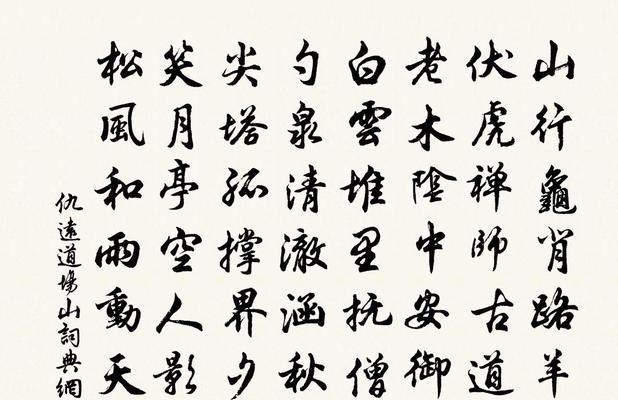 山行龜背路羊
伏虎禅師古道
老木陰中安御
白雲堆里抚僧
勺泉清澈涵秋
尖塔孤撑界夕
笑月亭空人影
松風和雨動天
仇遠道場山詞典網